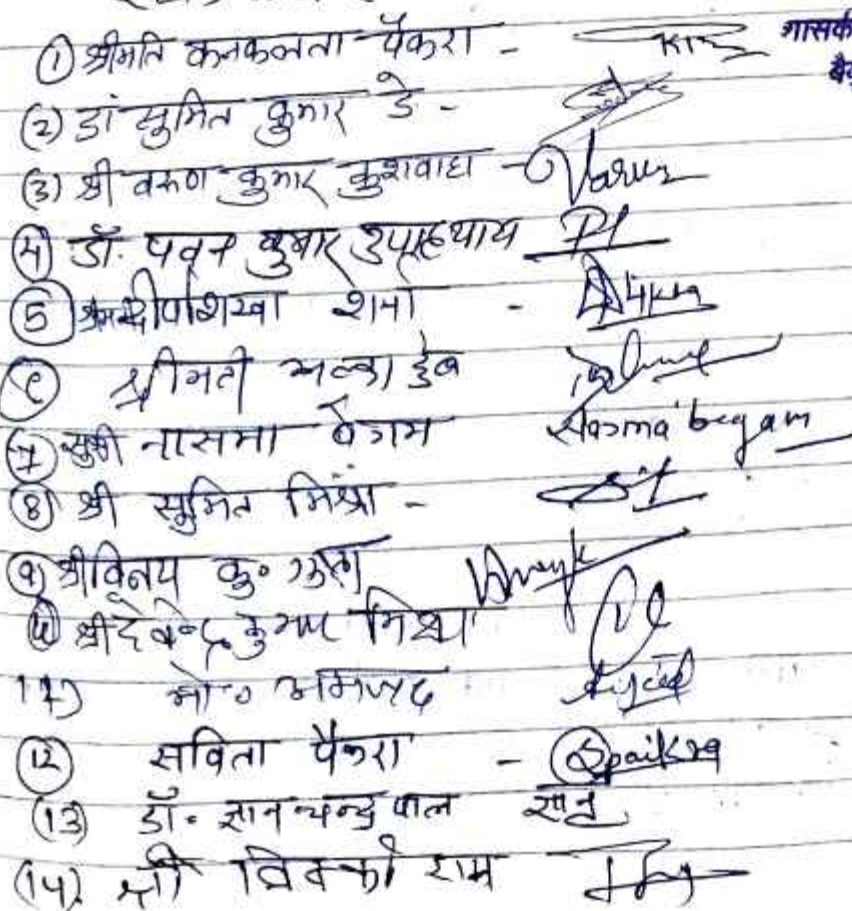 ① श्रीमति कनकलता पैकरा -
(2) डां सुमित कुमार डे -
(3) श्री वरुण कुमार कुशवाहा - Varun
④ डॉ. पवन कुमार उपाध्याय
⑤ दीपशिखा शर्मा -
श्रीमती अल्का डेब
⑦ सुश्री नासमा बेगम Nasma begam
⑧ श्री सुमित मिश्रा -
⑨ श्री विनय कु० गुप्ता
श्री देवेन्द्र कुमार मिश्रा
11) मो० अमजद
⑫ सविता पैकरा - Spaikra
(13) डॉ. ज्ञान चन्द्र पाल
(14) श्री विक्की राम